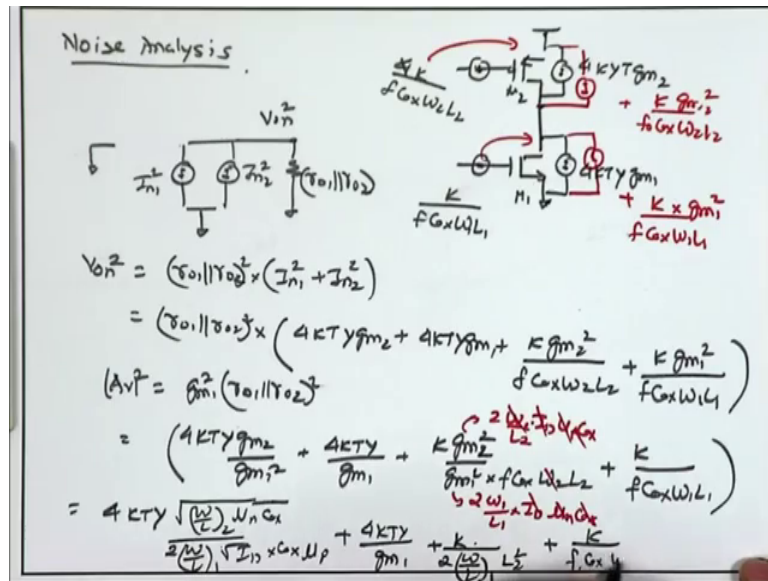 Noise Analysis.
4K / f Cox W2 L2
M2
4KγT gm2
+ K gm2² / f Cox W2 L2
K / f Cox W1 L1
M1
4KTγ gm1
+ K × gm1² / f Cox W1 L1
Von²
In1² In2² (ro1||ro2)
Von² = (ro1||ro2)² × (In1² + In2²)
= (ro1||ro2)² × ( 4KTγ gm2 + 4KTγ gm1 + K gm2² / f Cox W2 L2 + K gm1² / f Cox W1 L1 )
(Av)² = gm1² (ro1||ro2)²
= ( 4KTγ gm2 / gm1² + 4KTγ / gm1 + K gm2² / gm1² × f Cox W2 L2 + K / f Cox W1 L1 )
= 4KTγ √(W/L)2 μn Cox / 2 (W/L)1 √ID × Cox μp + 4KTγ / gm1 + K / 2 (W/L)1 L2² + K / f Cox W